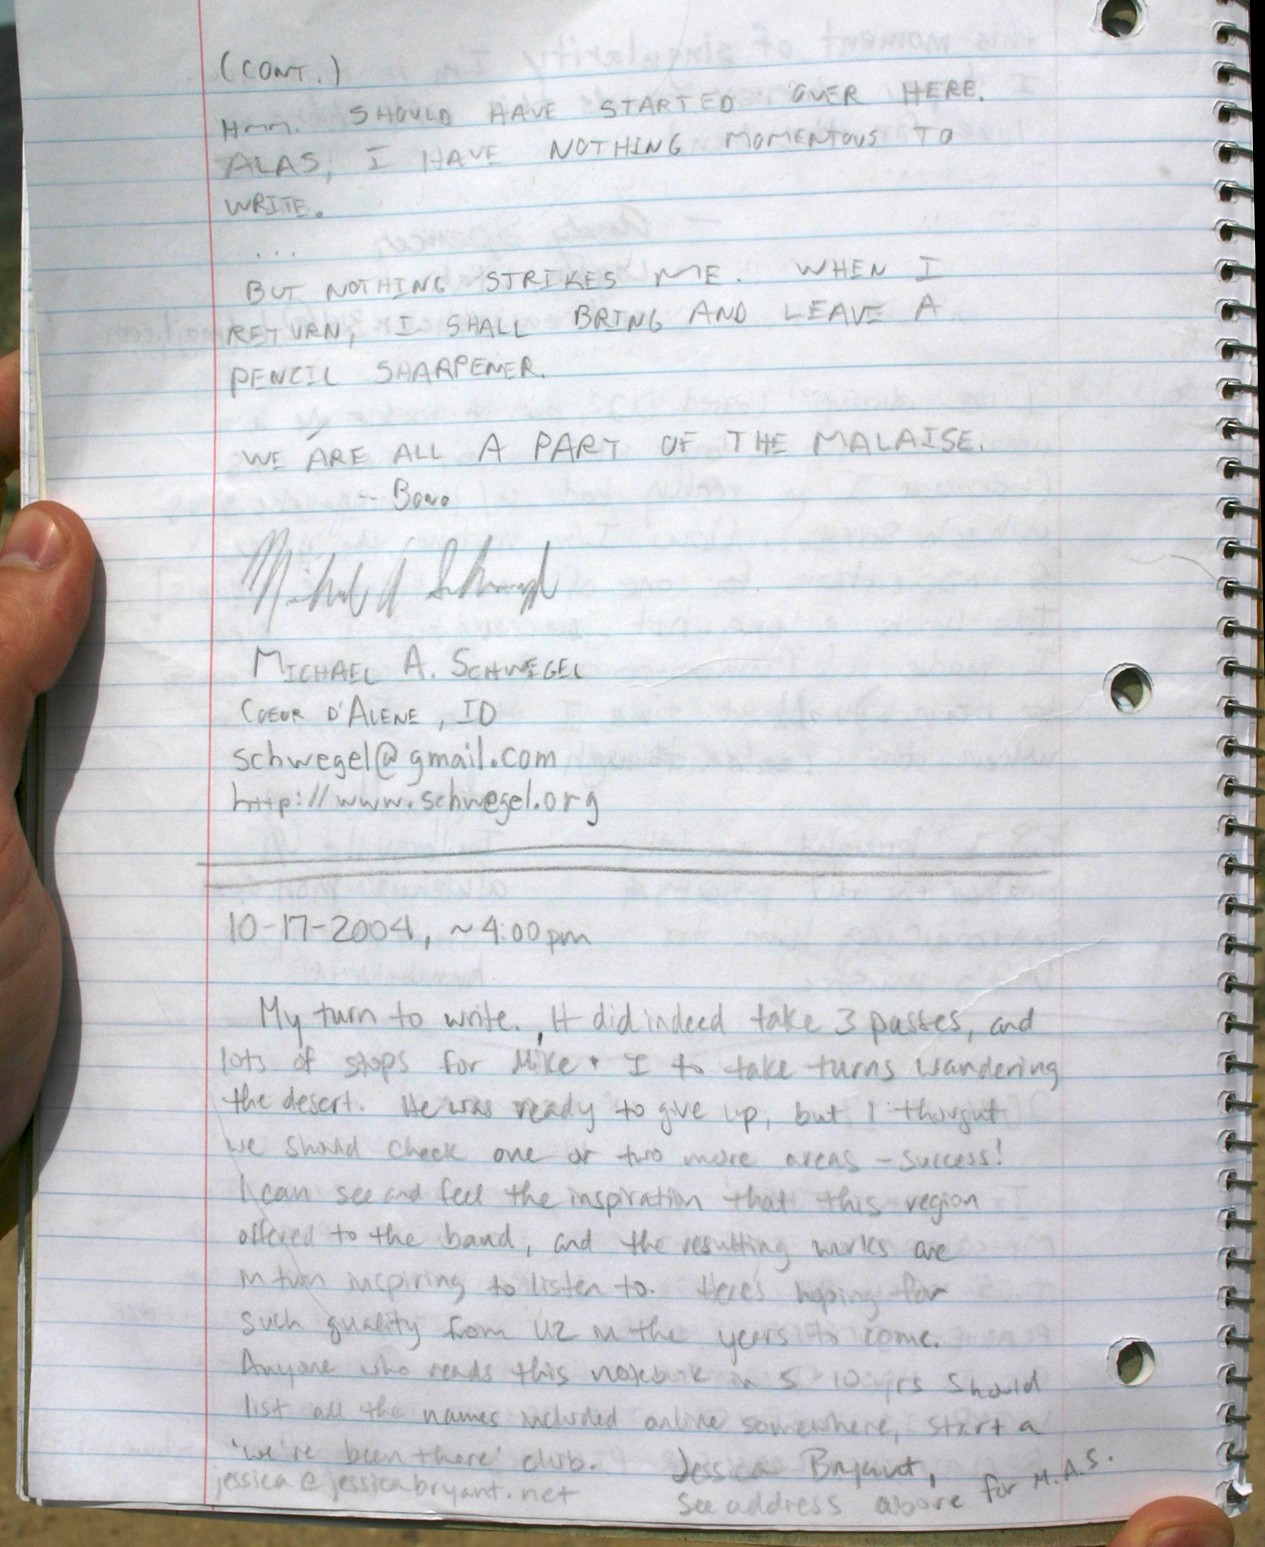 (CONT.)
HMM. SHOULD HAVE STARTED OVER HERE.
ALAS, I HAVE NOTHING MOMENTOUS TO
WRITE.
...
BUT NOTHING STRIKES ME. WHEN I
RETURN, I SHALL BRING AND LEAVE A
PENCIL SHARPENER.
WE ARE ALL A PART OF THE MALAISE.
-- Bono
MICHAEL A. SCHWEGEL
COEUR D'ALENE, ID
schwegel@gmail.com
http://www.schwegel.org
10-17-2004, ~4:00pm
My turn to write. It did indeed take 3 passes, and
lots of stops for Mike + I to take turns wandering
the desert. He was ready to give up, but I thought
we should check one or two more areas - success!
I can see and feel the inspiration that this region
offered to the band, and the resulting works are
in turn inspiring to listen to. Here's hoping for
such quality from U2 in the years to come.
Anyone who reads this notebook in 5-10 yrs should
list all the names included online somewhere, start a
'we've been there' club. Jessica Bryant,
jessica@jessicabryant.net see address above for M.A.S.